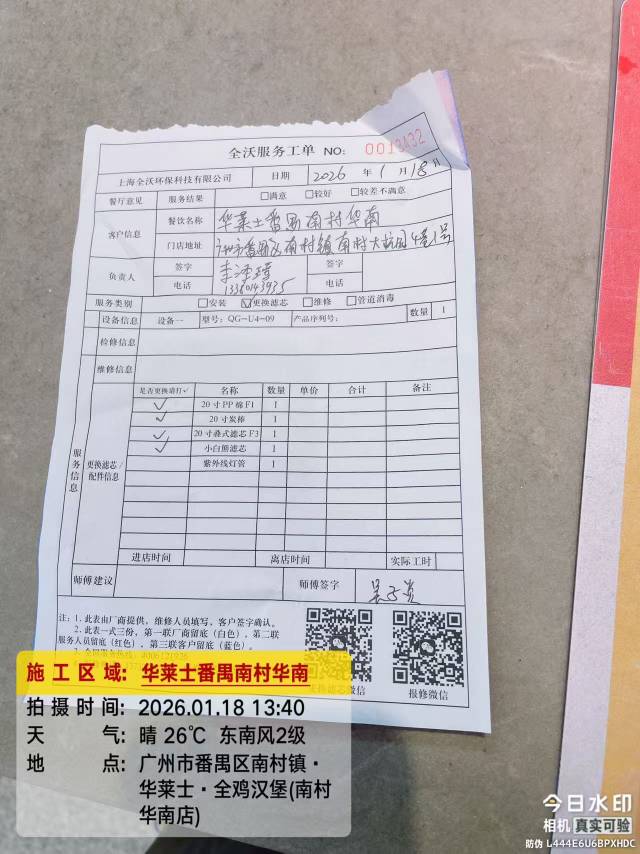 全沃服务工单 NO: 0013432
上海全沃环保科技有限公司 日期 2026 年 1 月 18日
餐厅意见 服务结果 □满意 □较好 □较差不满意
客户信息 餐饮名称 华莱士番禺南村华南
门店地址 广州市番禺区南村镇南村大
负责人 签字 签字
电话 电话
服务类别 □安装 ☑更换滤芯 □维修 □管道消毒
设备信息 设备一 型号: QG-U4-09 产品序列号: 数量 1
检修信息
维修信息
服务信息 更换滤芯/配件信息
是否更换请打✓ 名称 数量 单价 合计 备注
✓ 20寸PP棉F1 1
✓ 20寸炭棒 1
✓ 20寸叠式滤芯F3 1
✓ 小白熊滤芯 1
紫外线灯管 1
进店时间 离店时间 实际工时
师傅建议 师傅签字
注: 1. 此表由厂商提供, 维修人员填写, 客户签字确认。
2. 此表一式三份, 第一联厂商留底（白色）, 第二联
服务人员留底（红色）, 第三联客户留底（蓝色）。
报修微信
施工区域: 华莱士番禺南村华南
拍摄时间: 2026.01.18 13:40
天 气: 晴 26℃ 东南风2级
地 点: 广州市番禺区南村镇·
华莱士·全鸡汉堡(南村
华南店)
今日水印
相机 真实可验
防伪 L444E6U6BPXHDC